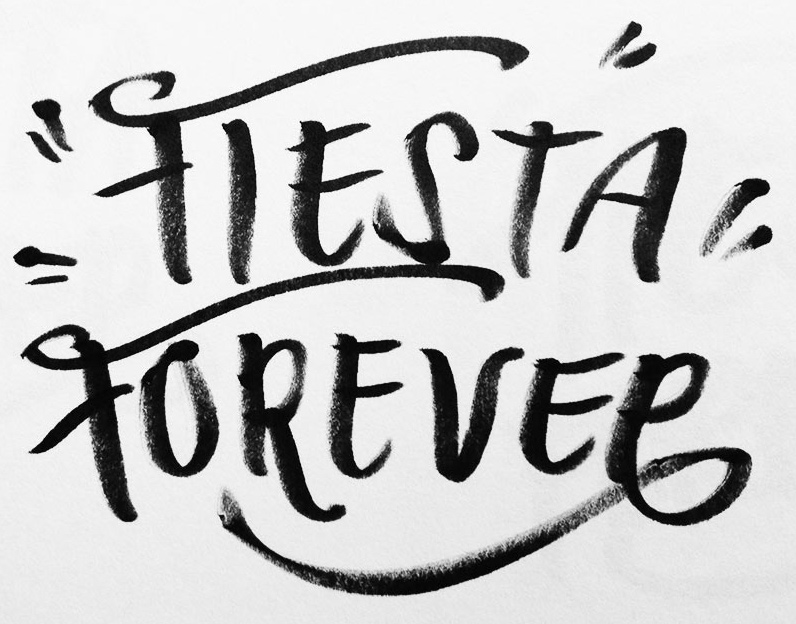 FIESTA
FOREVER